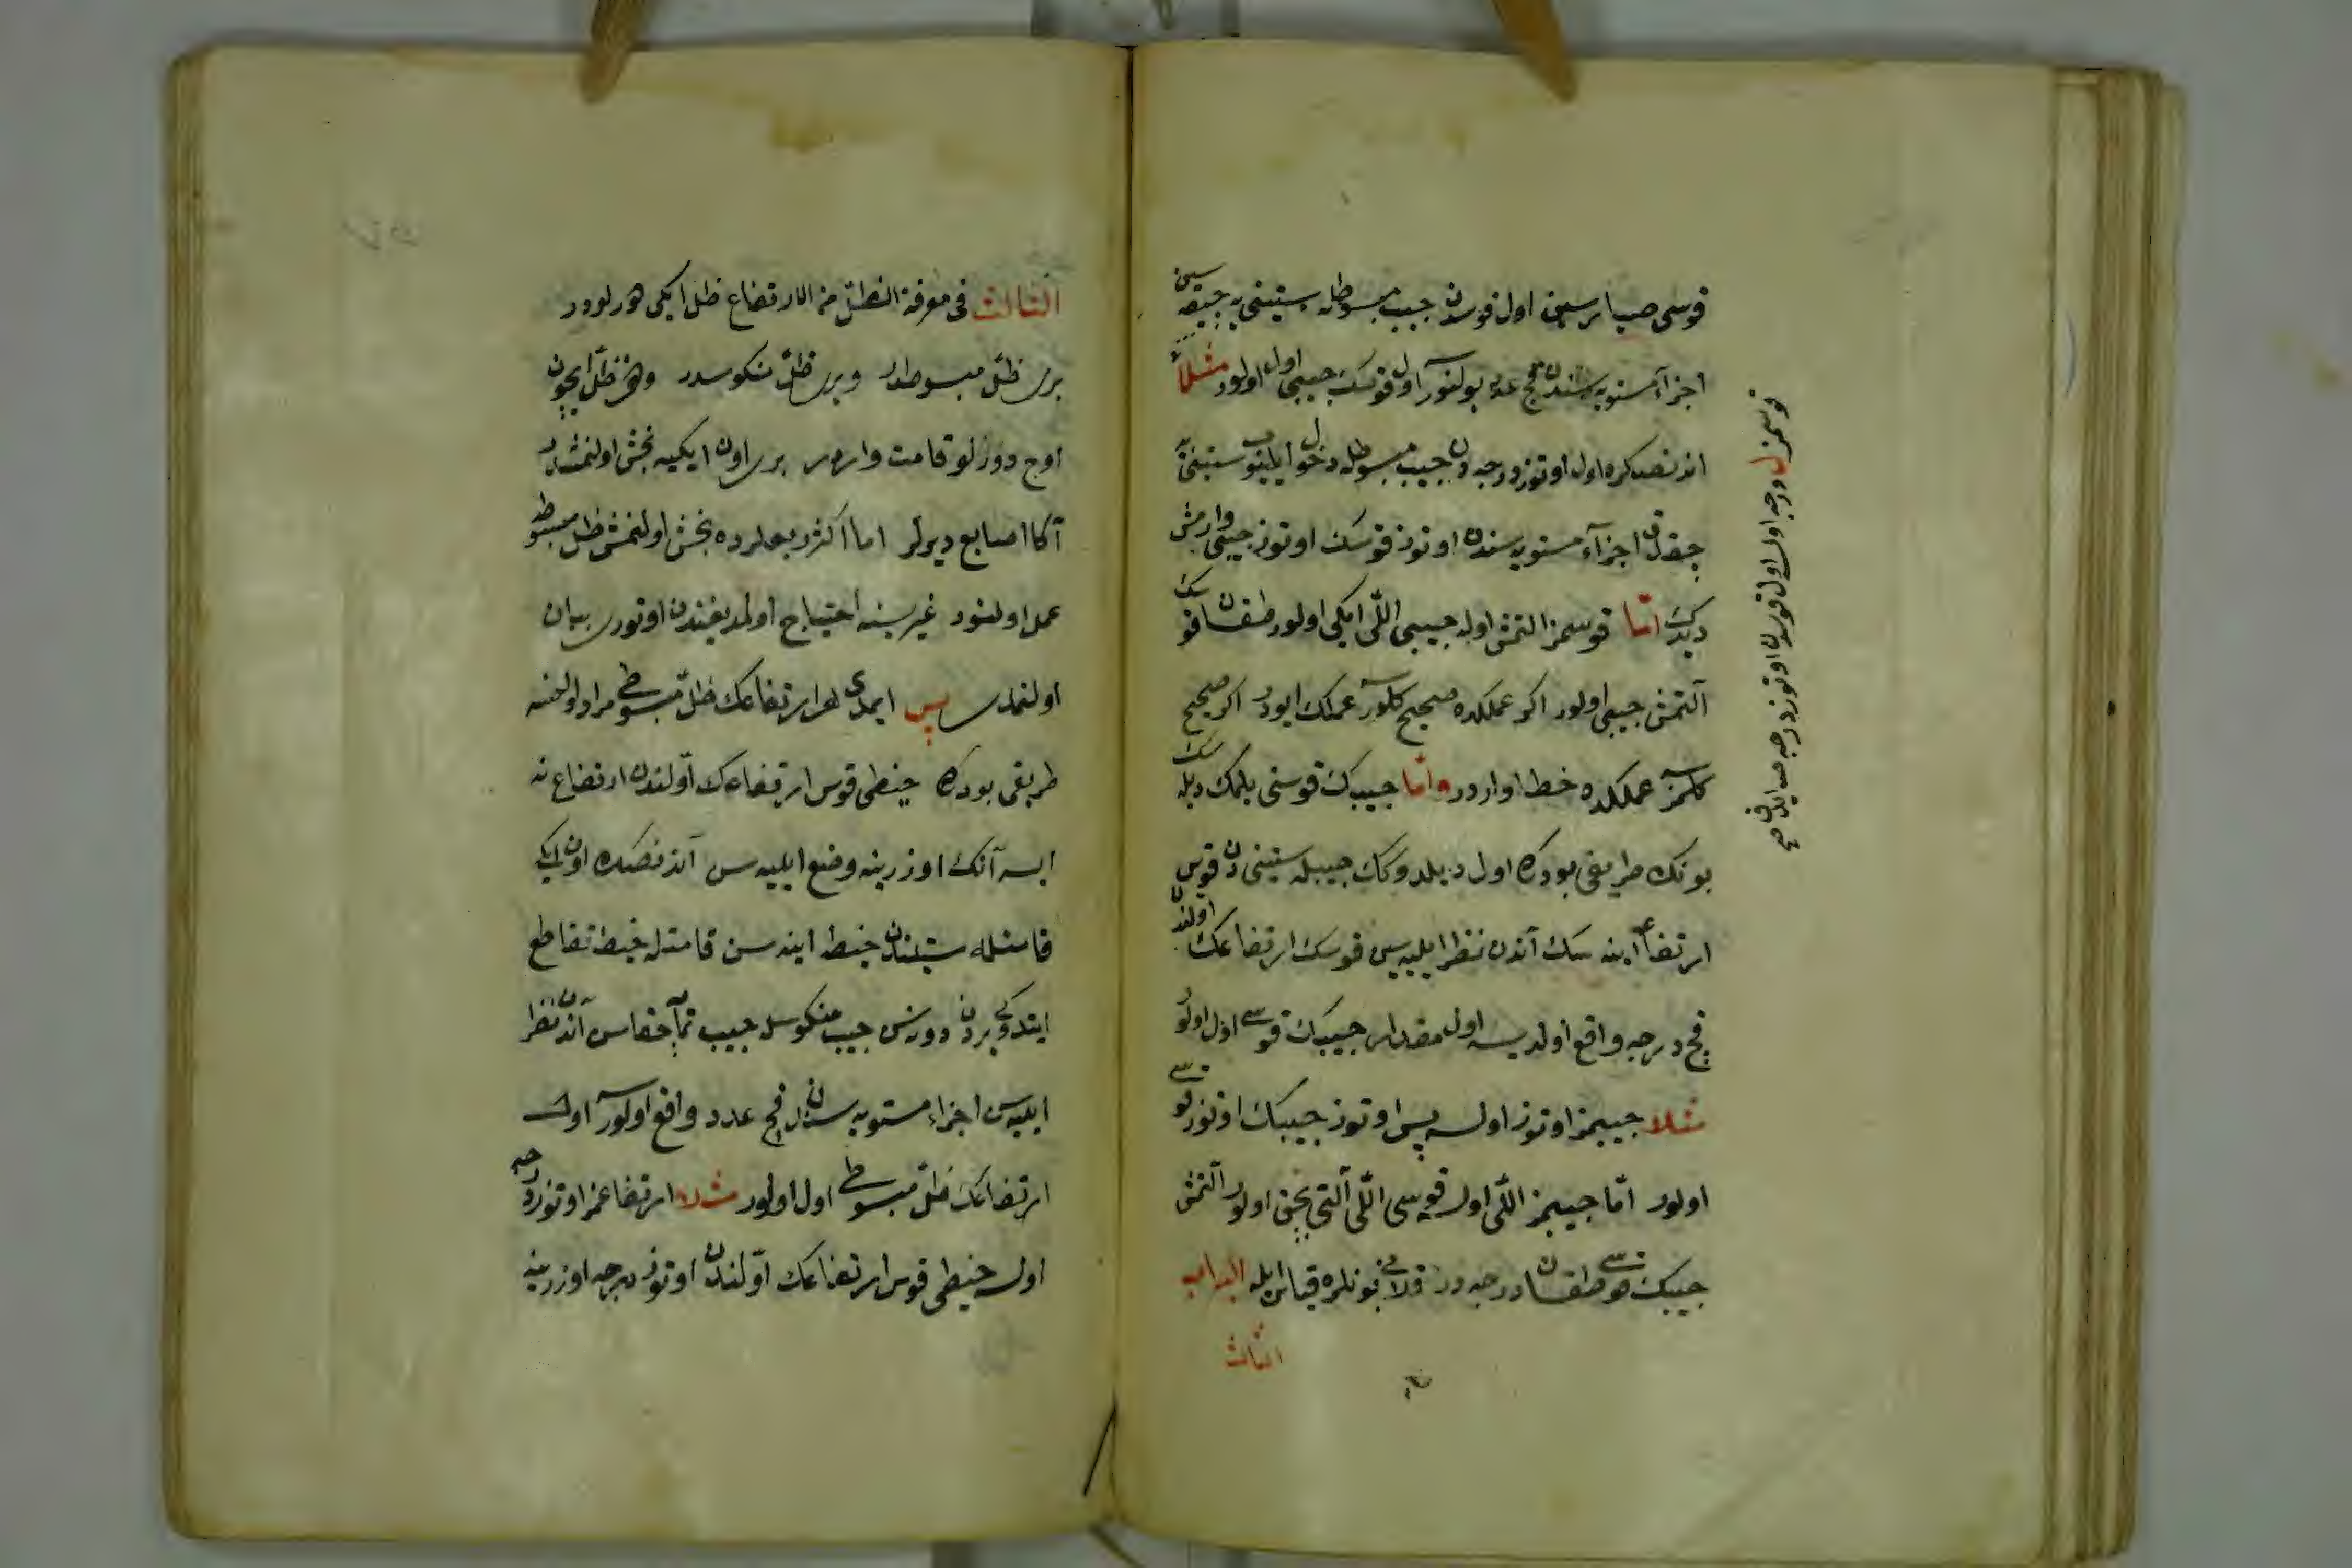 قوسی صیارسین اول قوسدن جیب مبسوطله ستینی یه چیقه سین
اجزآء مستویه سندن قچ عدد بولنورسه اول قوسك جیبی اول اولور مثلا
اندنصکره اول اوتوز درجه دن جیب مبسوطله دخول ایلیوب ستینی یه
چقدق اجزآء مستویه سندن اوتوز قوسك اوتوز جیبی وارمش
دیدك اما قوسمز التمش اولسه جیبی اللی ایکی اولور طقسان قوسك
آلتمش جیبی اولور اکر عملکده صحیح کلورسه عملك ایودر اکر صحیح
کلمزسه عملکده خطا واردر و اما جیبك قوسنی بلمك دیلرسك
بونك طریقی بودرکه اول دیلدوکك جیبله ستینی دن قوس
ارتفاعه اینه سك آندن نظر ایلیه سین قوسك ارتفاعك اولندن
قچ درجه واقع اولدیسه اول مقدار جیبك قوسی اول اولور
مثلا جیبمز اوتوز اولسه پس اوتوز جیبك اوتوز قوسی
اولور اما جیبمز اللی اولسه قوسی اللی آلتی بچق اولور آلتمش
جیبك قوسی طقسان درجه در قلانی بونلره قیاس ایله الباب
الثالث
قوسمز ل درجه اولسه اول قوسدن اوتوز درجه صایدق صح
الثالث فی معرفة الظل من الارتفاع ظل ایکی نوعدر
بری ظل مبسوطدر وبری ظل منکوسدر وهر ظل ایچون
اوج دوزلو قامت واردر بری اون ایکیه بخش اولنمشدر
آکا اصابع دیرلر اما اکثر ربعلرده بخش اولنمش ظل مبسوط
عمل اولنور غیرسینه احتیاج اولمدیغندن اوتوری بیان
اولنمدی پس ایمدی هر ارتفاعك ظل مبسوطی مراد اولنسه
طریقی بودرکه خیطی قوس ارتفاعك اولندن ارتفاع نه
ایسه آنك اوزرینه وضع ایلیه سن آندنصکره اون ایکی
قامتله ستیندن خیطه اینه سن قامتله خیط تقاطع
ایتدوکی یردن دونسن جیب منکوسله جیب تمامه چقاسن آندن نظر
ایلیه سن اجزاء مستویه سندن قچ عدد واقع اولورسه اول
ارتفاعك ظل مبسوطی اول اولور مثلا ارتفاعمز اوتوز درجه
اولسه خیطی قوس ارتفاعك اولندن اوتوز درجه اوزرینه